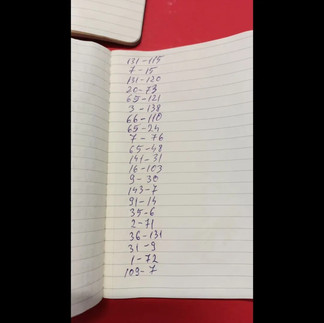 131-115
7-15
131-120
20-73
65-121
3-138
66-110
65-24
7-76
65-48
141-31
16-103
9-30
143-7
91-14
35-6
2-71
36-131
31-9
1-72
109-7